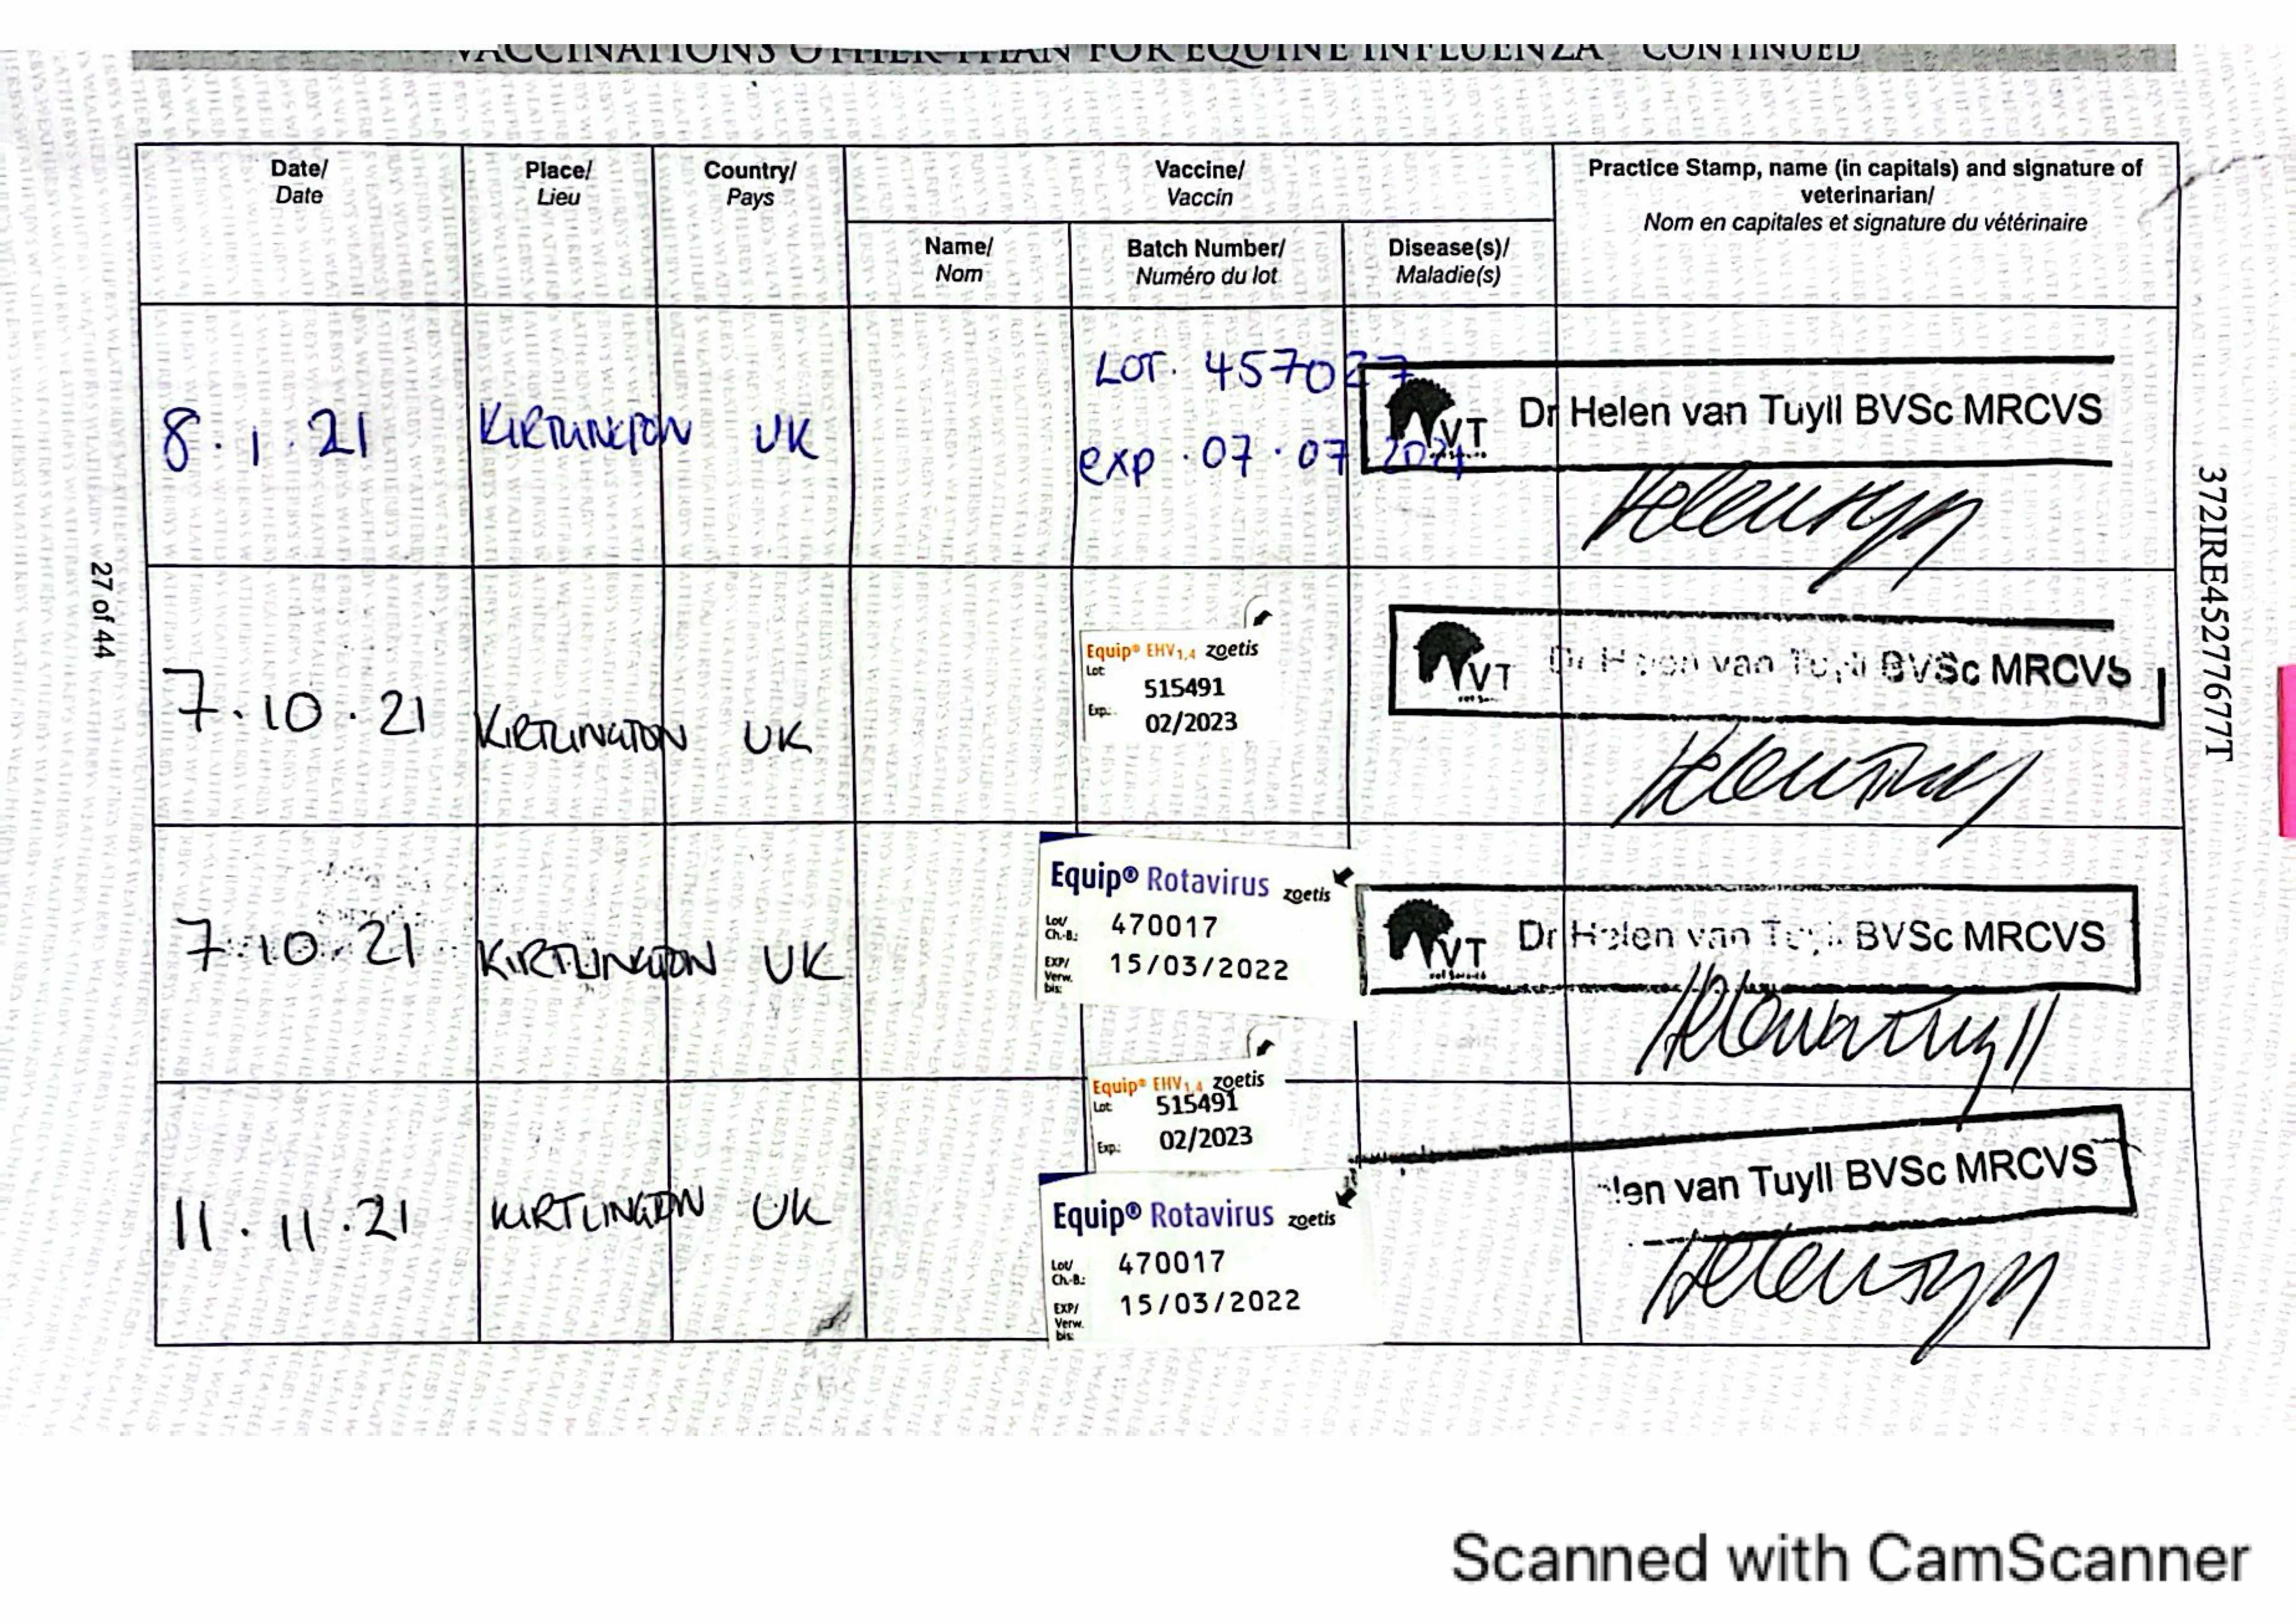 VACCINATIONS OTHER THAN FOR EQUINE INFLUENZA CONTINUED
Date/
Date
Place/
Lieu
Country/
Pays
Vaccine/
Vaccin
Name/
Nom
Batch Number/
Numéro du lot
Disease(s)/
Maladie(s)
Practice Stamp, name (in capitals) and signature of
veterinarian/
Nom en capitales et signature du vétérinaire
8.1.21 KIRTLINGTON UK
LOT. 457027
exp. 07.07.2021
VT Dr Helen van Tuyll BVSc MRCVS
7.10.21 KIRTLINGTON UK
Equip® EHV1,4 zoetis
Lot: 515491
Exp.: 02/2023
VT Dr Helen van Tuyll BVSc MRCVS
7.10.21 KIRTLINGTON UK
Equip® Rotavirus zoetis
Lot/
Ch.-B.: 470017
EXP/
Verw.
bis: 15/03/2022
VT Dr Helen van Tuyll BVSc MRCVS
11.11.21 KIRTLINGTON UK
Equip® EHV1,4 zoetis
Lot: 515491
Exp.: 02/2023
Equip® Rotavirus zoetis
Lot/
Ch.-B.: 470017
EXP/
Verw.
bis: 15/03/2022
len van Tuyll BVSc MRCVS
27 of 44
372IRE45277677T
Scanned with CamScanner